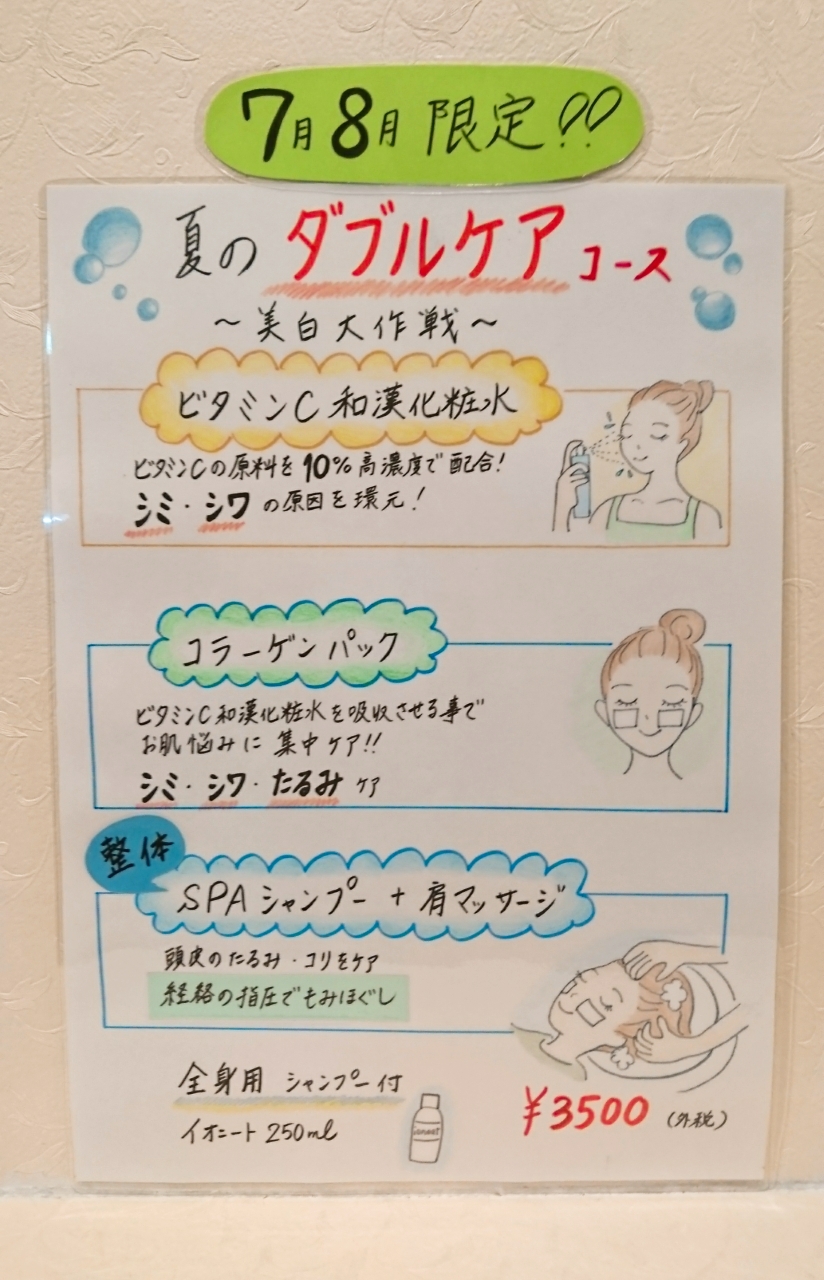 7月8月限定!!
夏のダブルケアコース
～美白大作戦～
ビタミンC和漢化粧水
ビタミンCの原料を10%高濃度で配合!
シミ・シワの原因を還元!
コラーゲンパック
ビタミンC和漢化粧水を吸収させる事で
お肌悩みに集中ケア!!
シミ・シワ・たるみケア
整体
SPAシャンプー+肩マッサージ
頭皮のたるみ・コリをケア
経絡の指圧でもみほぐし
全身用 シャンプー付
イオニート 250ml
¥3500(外税)